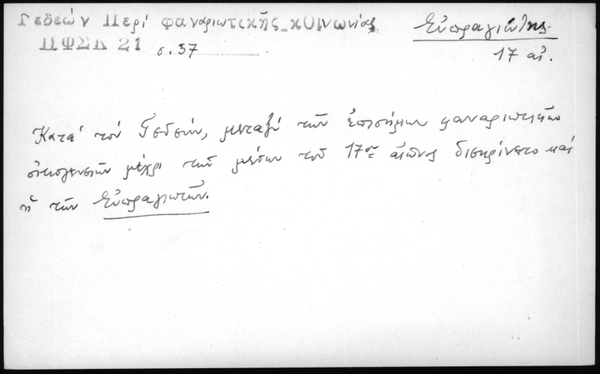 Γεδεών Περί φαναριωτικῆς κοινωνίας
ΠΦΣΚ 21 σ. 37
Εὐπραγιώτης
17 αἰ.
Κατά τόν Γεδεών, μεταξύ τῶν ἐπισήμων φαναριωτικῶν
οἰκογενειῶν μέχρι τῶν μέσων τοῦ 17ου αἰῶνος διεκρίνετο καί
ἡ τῶν Εὐπραγιωτῶν.